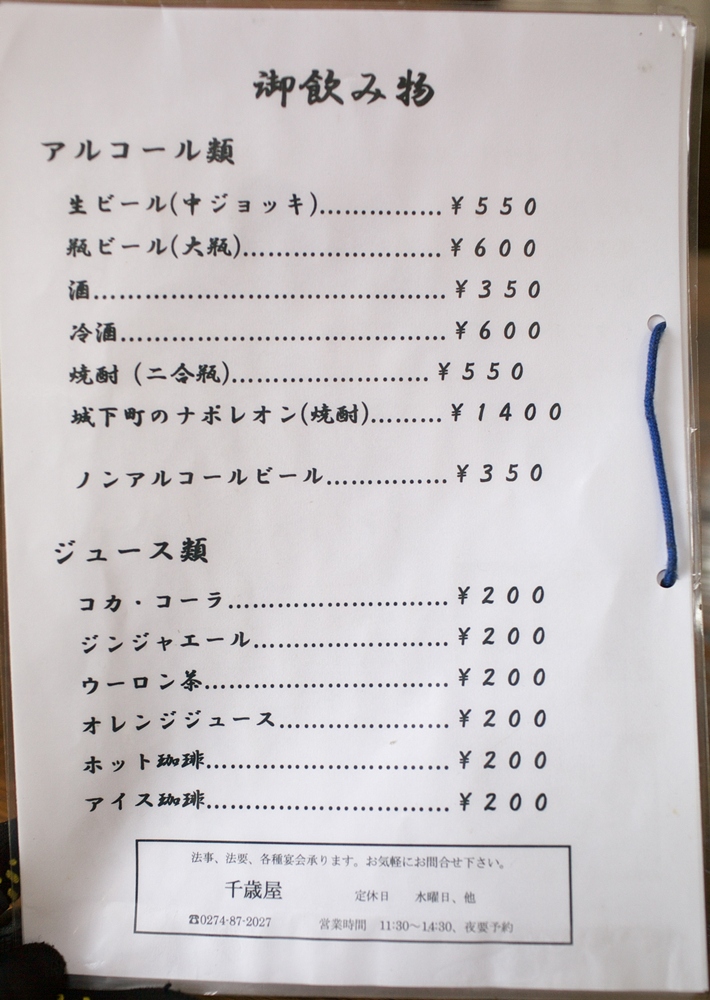 御飲み物
アルコール類
生ビール(中ジョッキ)………………¥550
瓶ビール(大瓶)………………………¥600
酒……………………………………………¥350
冷酒…………………………………………¥600
焼酎（二合瓶)…………………………¥550
城下町のナポレオン(焼酎)………¥1400
ノンアルコールビール………………¥350
ジュース類
コカ・コーラ……………………………¥200
ジンジャエール…………………………¥200
ウーロン茶………………………………¥200
オレンジジュース………………………¥200
ホット珈琲………………………………¥200
アイス珈琲………………………………¥200
法事、法要、各種宴会承ります。お気軽にお問合せ下さい。
千歳屋 定休日 水曜日、他
☎0274-87-2027 営業時間 11:30～14:30、夜要予約